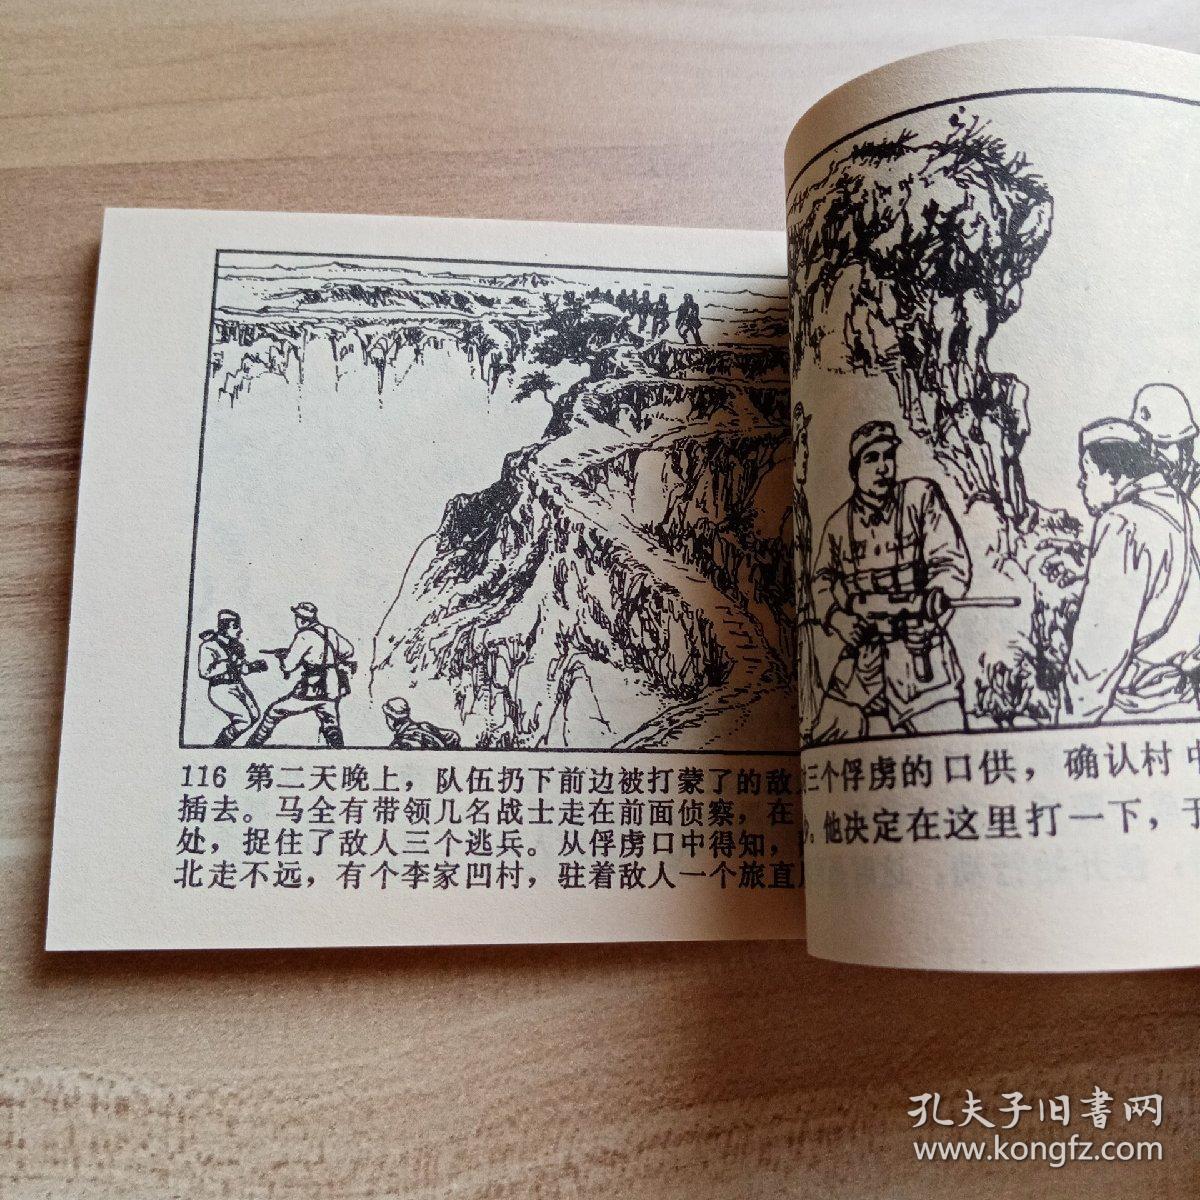 116 第二天晚上，队伍扔下前边被打蒙了的敌
插去。马全有带领几名战士走在前面侦察，在
处，捉住了敌人三个逃兵。从俘虏口中得知，
北走不远，有个李家凹村，驻着敌人一个旅直
三个俘虏的口供，确认村中
。他决定在这里打一下，于
孔夫子旧書网
www.kongfz.com